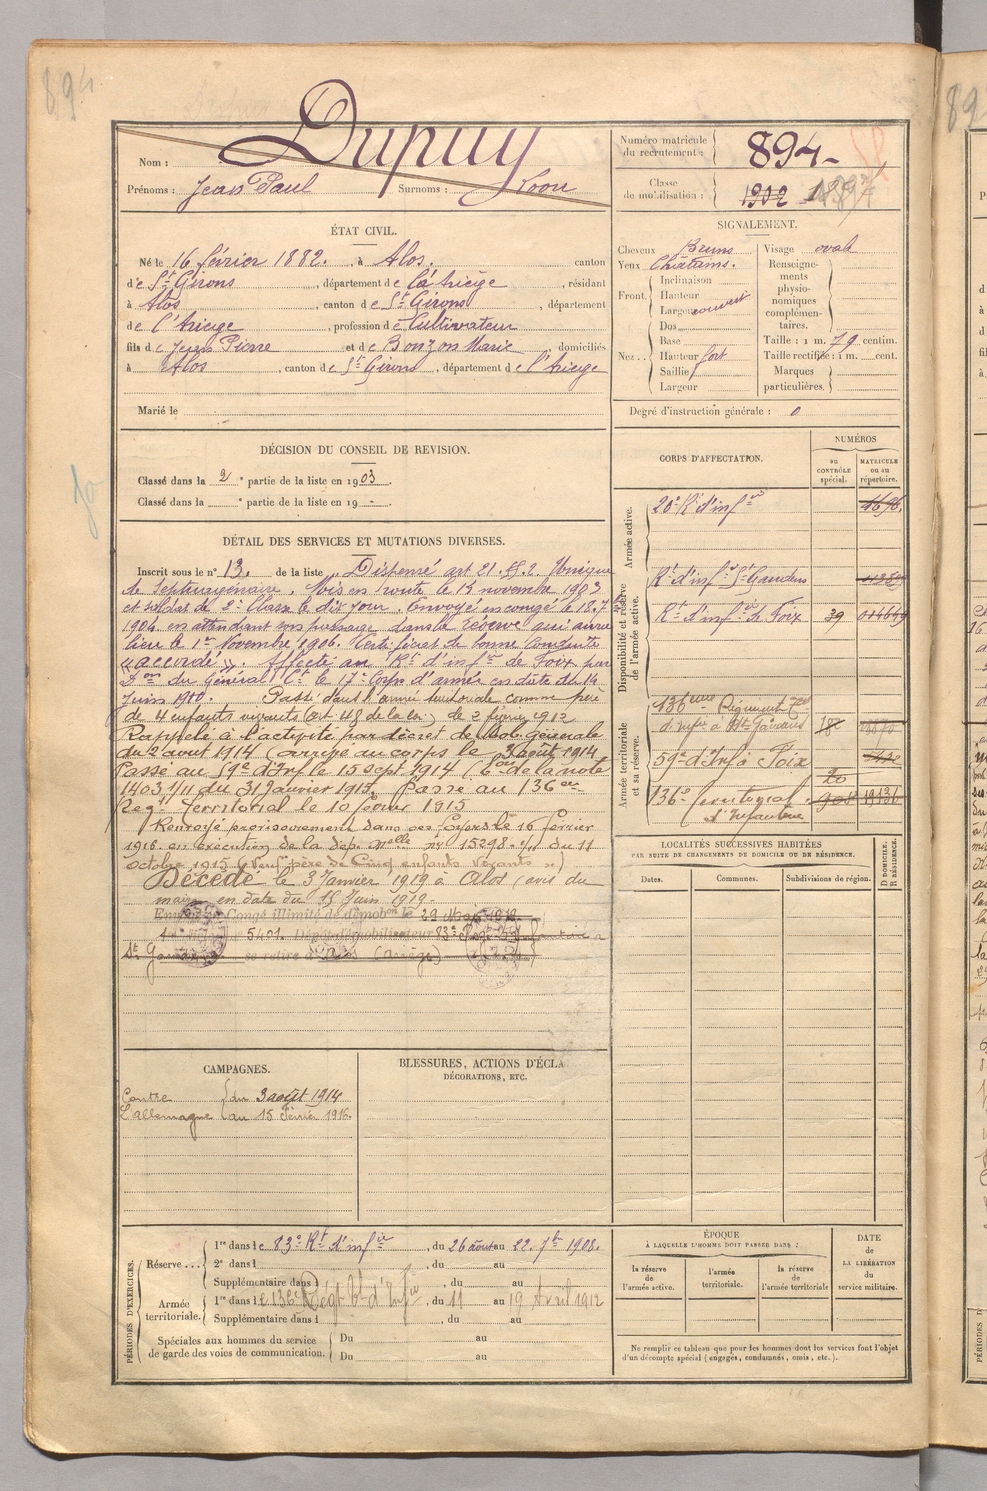 894
Dupuy
Nom :
Prénoms : Jean Paul Surnoms :
Numéro matricule du recrutement : 894
Classe de mobilisation : 1902 1897
ÉTAT CIVIL.
Né le 16 février 1882, à Alos, canton
de St Girons, département de l'Ariège, résidant
à Alos, canton de St Girons, département
de l'Ariège, profession de Cultivateur
fils de Jean Pierre et de Bonzon Marie, domiciliés
à Alos, canton de St Girons, département de l'Ariège
Marié le
SIGNALEMENT.
Cheveux Bruns Visage ovale
Yeux Châtains.
Front. Inclinaison
Hauteur
Largeur couvert
Nez... Dos
Base
Hauteur fort
Saillie
Largeur
Renseignements physionomiques complémentaires.
Taille : 1 m. 79 centim.
Taille rectifiée : 1 m. cent.
Marques particulières.
Degré d'instruction générale : 0
DÉCISION DU CONSEIL DE REVISION.
Classé dans la 2e partie de la liste en 1903.
Classé dans la e partie de la liste en 19 -
DÉTAIL DES SERVICES ET MUTATIONS DIVERSES.
Inscrit sous le n° 13. de la liste Dispensé art 21. § 2. Unique
de Septuagénaire. Mis en route le novembre 1903
et soldat de 2e Classe le dix jour. Envoyé en congé le 18. 7
1904. en attendant son passage dans la Réserve qui aura
lieu le 1er Novembre 1906. Certificat de bonne Conduite
"accordé". Affecté au Rt d'infie de Foix par
Don du Général Ct le 17e Corps d'armée en date du 14
Juin 1910. Passé dans l'armée territoriale comme père
de 4 enfants vivants (art 48 de la loi) le 2 février 1912
Rappelé à l'activité par décret de Mob. Générale
du 2 août 1914 (arrivé au corps le 3 août 1914
Passé au 59e d'Inf le 15 sept 1914 ( de la note
1403 1/11 du 31 Janvier 1915. Passé au 136e
Regt Territorial le 10 février 1915
Renvoyé provisoirement dans ses foyers le 16 février
1916. en exécution de la dép. Mlle n° 15298. du 11
octobre 1915 (Veuf, père de Cinq enfants Vivants)
Décédé le 3 Janvier 1919 à Alos (avis du
maire en date du 15 Juin 1919.
Congé illimité de démobon le 29 Mai 1919.
5401. Dépôt démobilisateur 83e
St Gaudens se retire à Alos (Ariège)
CORPS D'AFFECTATION.
NUMÉROS
au CONTRÔLE spécial.
MATRICULE ou au répertoire.
Armée active.
20e Rt d'infie 1696
Disponibilité et réserve de l'armée active.
Rt d'infie St Gaudens
Rt d'infie de Foix 39
Armée territoriale et sa réserve.
136ème Régiment Terr
d'infie à St Gaudens 18
59e d'Inf à Foix
136e Territorial d'Infanterie 1913
LOCALITÉS SUCCESSIVES HABITÉES
PAR SUITE DE CHANGEMENTS DE DOMICILE OU DE RÉSIDENCE.
Dates. Communes. Subdivisions de région.
D DOMICILE. R RÉSIDENCE.
CAMPAGNES.
Contre L'allemagne du 3 août 1914
au 15 Février 1916.
BLESSURES, ACTIONS D'ÉCLA
DÉCORATIONS, ETC.
PÉRIODES D'EXERCICES.
Réserve... 1re dans le 83e Rt d'infie, du 26 août au 22 7bre 1908.
2e dans l , du au
Supplémentaire dans l , du au
Armée territoriale. 1re dans le 136e Régt tal d'Infie, du 11 au 19 Avril 1912
Supplémentaire dans l , du au
Spéciales aux hommes du service de garde des voies de communication. Du au
Du au
ÉPOQUE
À LAQUELLE L'HOMME DOIT PASSER DANS :
la réserve de l'armée active.
l'armée territoriale.
la réserve de l'armée territoriale
DATE de LA LIBÉRATION du service militaire.
Ne remplir ce tableau que pour les hommes dont les services font l'objet
d'un décompte spécial (engagés, condamnés, omis, etc.).